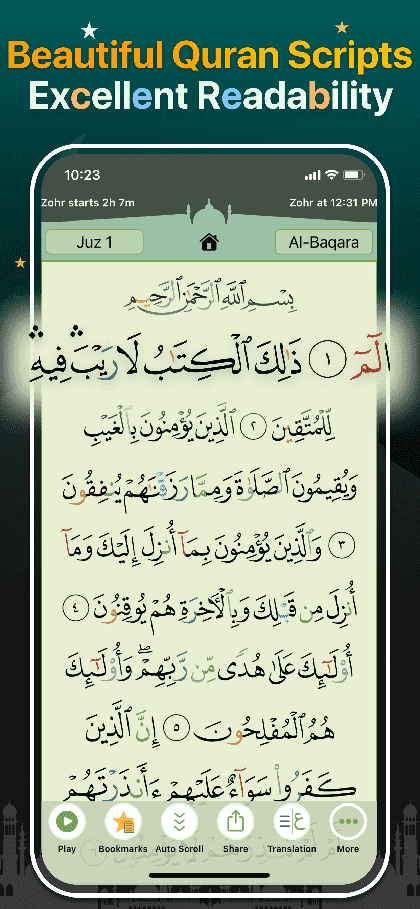 Beautiful Quran Scripts
Excellent Readability
10:23
Zohr starts 2h 7m
Zohr at 12:31 PM
Juz 1
Al-Baqara
بِسْمِ ٱللَّهِ ٱلرَّحْمَٰنِ ٱلرَّحِيمِ
الٓمٓ ١ ذَٰلِكَ ٱلْكِتَٰبُ لَا رَيْبَ ۛ فِيهِ ۛ
لِّلْمُتَّقِينَ ٢ ٱلَّذِينَ يُؤْمِنُونَ بِٱلْغَيْبِ
وَيُقِيمُونَ ٱلصَّلَوٰةَ وَمِمَّا رَزَقْنَٰهُمْ يُنفِقُونَ
٣ وَٱلَّذِينَ يُؤْمِنُونَ بِمَآ أُنزِلَ إِلَيْكَ وَمَآ
أُنزِلَ مِن قَبْلِكَ وَبِٱلْأَخِرَةِ هُمْ يُوقِنُونَ ٤
أُو۟لَٰٓئِكَ عَلَىٰ هُدًى مِّن رَّبِّهِمْ ۖ وَأُو۟لَٰٓئِكَ
هُمُ ٱلْمُفْلِحُونَ ٥ إِنَّ ٱلَّذِينَ
كَفَرُوا۟ سَوَآءٌ عَلَيْهِمْ ءَأَنذَرْتَهُمْ
Play
Bookmarks
Auto Scroll
Share
Translation
More